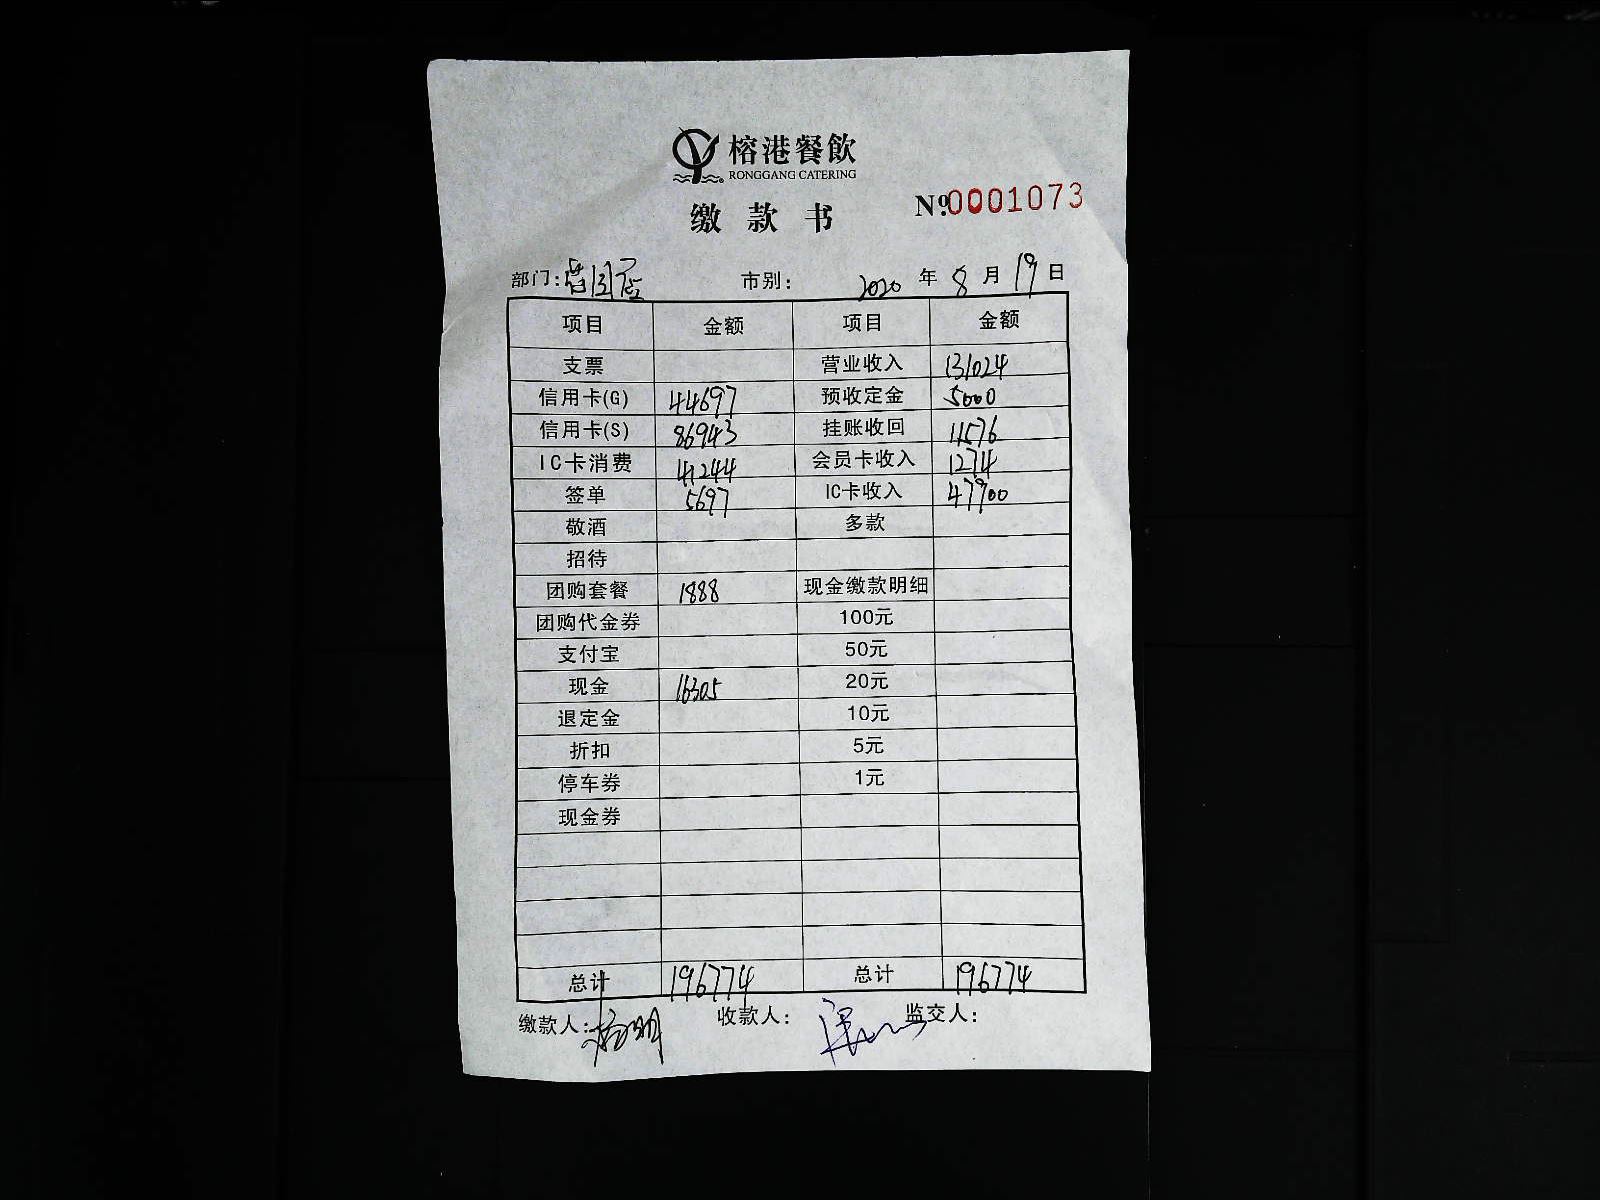 榕港餐飲
RONGGANG CATERING
缴款书
Nº 0001073
部门: 市别: 2020 年 8 月 19 日
项目 金额 项目 金额
支票 营业收入 131024
信用卡(G) 44697 预收定金 5000
信用卡(S) 86943 挂账收回 11576
IC卡消费 41244 会员卡收入 1274
签单 5697 IC卡收入 47900
敬酒 多款
招待
团购套餐 1888 现金缴款明细
团购代金券 100元
支付宝 50元
现金 16305 20元
退定金 10元
折扣 5元
停车券 1元
现金券
总计 196774 总计 196774
缴款人: 杨明 收款人: 监交人: